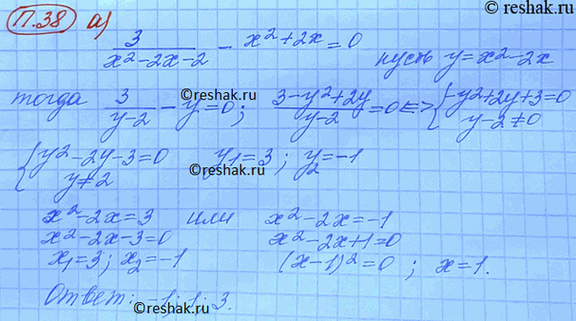 ©reshak.ru
П.38 а) 3/(x²-2x-2) - x²+2x=0
пусть y=x²-2x
тогда 3/(y-2) - y=0; (3-y²+2y)/(y-2)=0 <=> { -y²+2y+3=0
y-2≠0
{ y²-2y-3=0 y₁=3; y₂=-1
y≠2
x²-2x=3 или x²-2x=-1
x²-2x-3=0 x²-2x+1=0
x₁=3; x₂=-1 (x-1)²=0; x=1.
Ответ: -1; 1; 3.
©reshak.ru